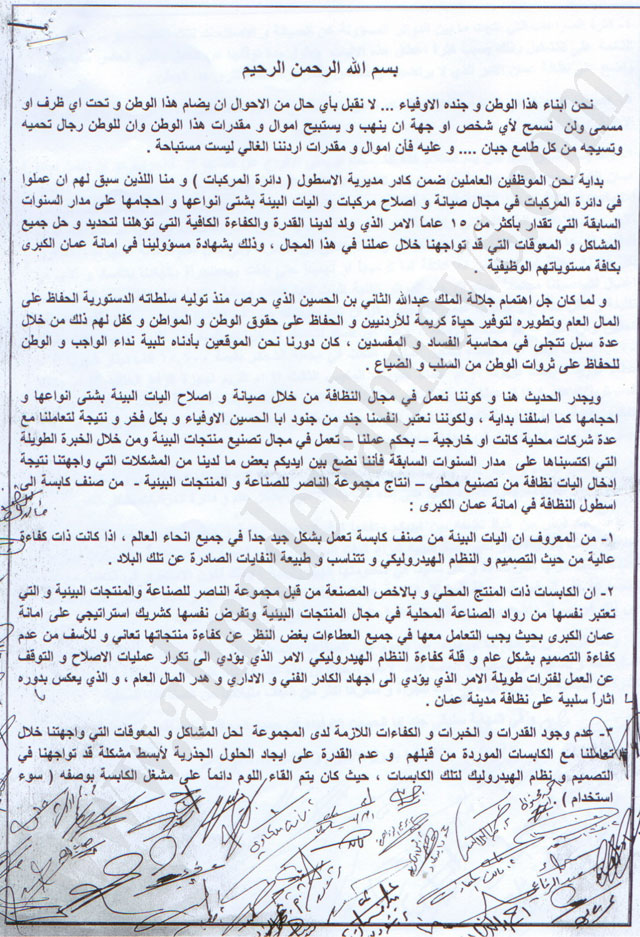 بسم الله الرحمن الرحيم
نحن ابناء هذا الوطن و جنده الاوفياء ... لا نقبل بأي حال من الاحوال ان يضام هذا الوطن و تحت اي ظرف او
مسمى ولن نسمح لأي شخص او جهة ان ينهب و يستبيح اموال و مقدرات هذا الوطن وان للوطن رجال تحميه
وتسيجه من كل طامع جبان .... و عليه فأن اموال و مقدرات اردننا الغالي ليست مستباحة .
بداية نحن الموظفين العاملين ضمن كادر مديرية الاسطول ( دائرة المركبات ) و منا اللذين سبق لهم ان عملوا
في دائرة المركبات في مجال صيانة و اصلاح مركبات و اليات البيئة بشتى انواعها و احجامها على مدار السنوات
السابقة التي تقدر بأكثر من ١٥ عاماً الامر الذي ولد لدينا القدرة والكفاءة الكافية التي تؤهلنا لتحديد و حل جميع
المشاكل و المعوقات التي قد تواجهنا خلال عملنا في هذا المجال ، وذلك بشهادة مسؤولينا في امانة عمان الكبرى
بكافة مستوياتهم الوظيفية .
و لما كان جل اهتمام جلالة الملك عبدالله الثاني بن الحسين الذي حرص منذ توليه سلطاته الدستورية الحفاظ على
المال العام وتطويره لتوفير حياة كريمة للأردنيين و الحفاظ على حقوق الوطن و المواطن و كفل لهم ذلك من خلال
عدة سبل تتجلى في محاسبة الفساد و المفسدين ، كان دورنا نحن الموقعين بأدناه تلبية نداء الواجب و الوطن
للحفاظ على ثروات الوطن من السلب و الضياع .
ويجدر الحديث هنا و كوننا نعمل في مجال النظافة من خلال صيانة و اصلاح اليات البيئة بشتى انواعها و
احجامها كما اسلفنا بداية ، ولكوننا نعتبر انفسنا جند من جنود ابا الحسين الاوفياء و بكل فخر و نتيجة لتعاملنا مع
عدة شركات محلية كانت او خارجية – بحكم عملنا – تعمل في مجال تصنيع منتجات البيئة ومن خلال الخبرة الطويلة
التي اكتسبناها على مدار السنوات السابقة فأننا نضع بين ايديكم بعض ما لدينا من المشكلات التي واجهتنا نتيجة
إدخال اليات نظافة من تصنيع محلي – انتاج مجموعة الناصر للصناعة و المنتجات البيئية - من صنف كابسة الى
اسطول النظافة في امانة عمان الكبرى :
١- من المعروف ان اليات البيئة من صنف كابسة تعمل بشكل جيد جداً في جميع انحاء العالم ، اذا كانت ذات كفاءة
عالية من حيث التصميم و النظام الهيدروليكي و تتناسب و طبيعة النفايات الصادرة عن تلك البلاد .
٢- ان الكابسات ذات المنتج المحلي و بالاخص المصنعة من قبل مجموعة الناصر للصناعة والمنتجات البيئية و التي
تعتبر نفسها من رواد الصناعة المحلية في مجال المنتجات البيئية وتفرض نفسها كشريك استراتيجي على امانة
عمان الكبرى بحيث يجب التعامل معها في جميع العطاءات بغض النظر عن كفاءة منتجاتها تعاني و للأسف من عدم
كفاءة التصميم بشكل عام و قلة كفاءة النظام الهيدروليكي الامر الذي يؤدي الى تكرار عمليات الاصلاح و التوقف
عن العمل لفترات طويلة الامر الذي يؤدي الى اجهاد الكادر الفني و الاداري و هدر المال العام ، و الذي يعكس بدوره
اثاراً سلبية على نظافة مدينة عمان .
٣- عدم وجود القدرات و الخبرات و الكفاءات اللازمة لدى المجموعة لحل المشاكل و المعوقات التي واجهتنا خلال
تعاملنا مع الكابسات الموردة من قبلهم و عدم القدرة على ايجاد الحلول الجذرية لأبسط مشكلة قد تواجهنا في
التصميم و نظام الهيدروليك لتلك الكابسات ، حيث كان يتم القاء اللوم دائماً على مشغل الكابسة بوصفه ( سوء
استخدام )